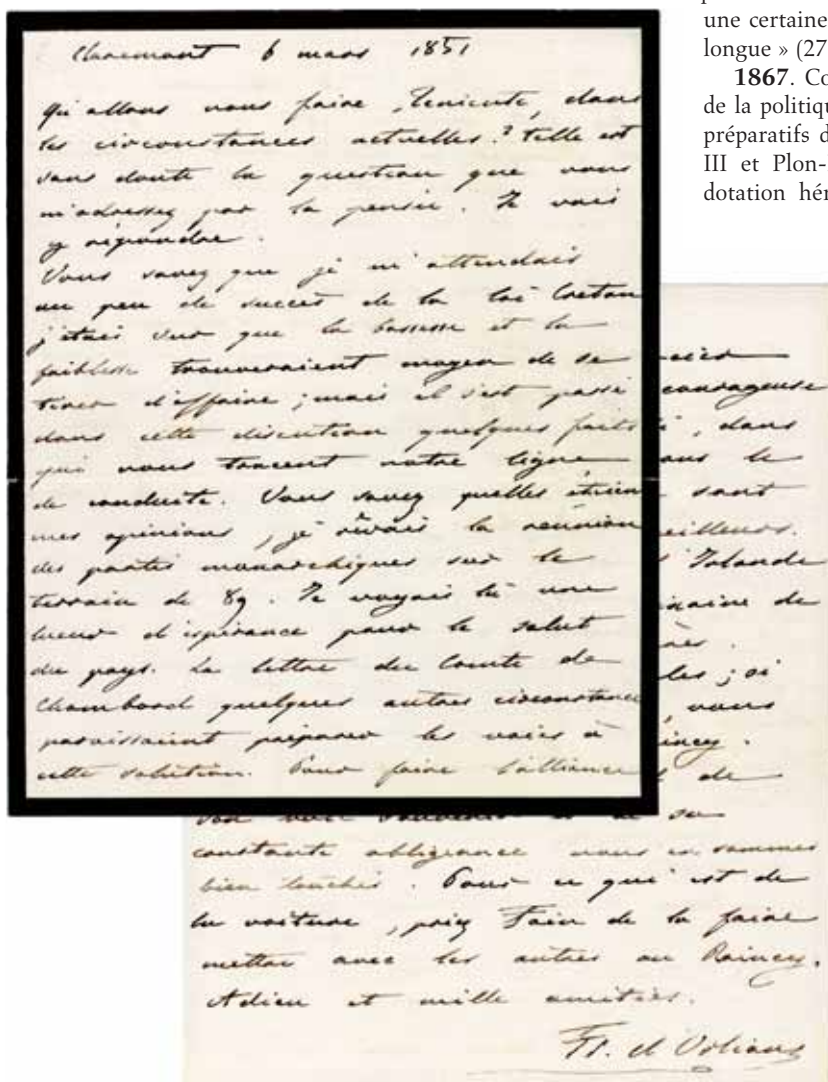 une certaine
longue » (27
1867. Co
de la politiq
préparatifs d
III et Plon-
dotation hér
Claremont 6 mars 1851
Qu'allons nous faire, Tenicente, dans
les circonstances actuelles ? telle est
sans doute la question que vous
m'adressez par la pensée. Je vais
y répondre.
Vous savez que je m'attendais
au peu de succès de la loi Creton
j'étais sur que la bassesse et la
faiblesse trouveraient moyen de se
tirer d'affaire ; mais il s'est passé
dans cette discution quelques faits
qui nous tracent notre ligne
de conduite. Vous savez quelles étaien
mes opinions, je rêvais la réunion
des partis monarchiques sur le
terrain de 89. Je voyais là une
lueur d'espérance pour le salut
du pays. La lettre du Comte de
Chambord quelques autres circonstance
paroissaient préparer les voies à
cette solution. Pour faire l'alliance
courageuse
, dans
ous le
sont
eilleurs.
Jolande
aine de
les ; si
vous
incy.
de
son bon souvenir et de sa
constante obligeance nous en sommes
bien touchés. Pour ce qui est de
la voiture, priez Fain de la faire
mettre avec les autres au Raincy.
Adieu et mille amitiés.
Fr. d'Orléans